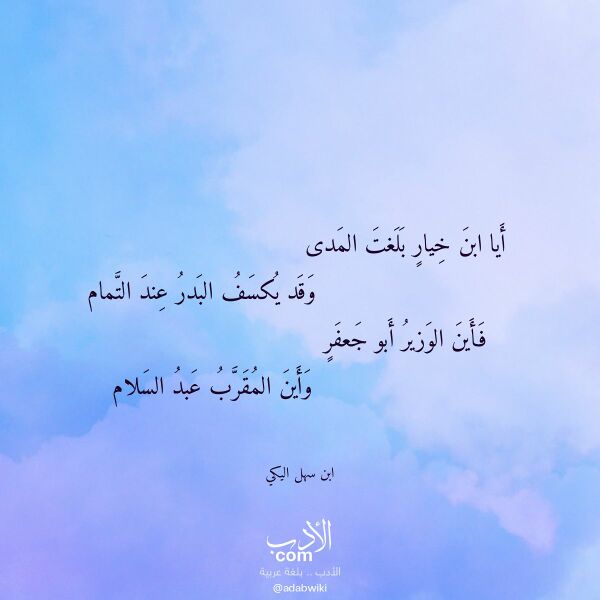 أَيا ابنَ خِيارٍ بَلَغتَ المَدى
وَقَد يُكسَفُ البَدرُ عِندَ التَّمام
فَأَينَ الوَزيرُ أَبو جَعفَرٍ
وَأَينَ المُقَرَّبُ عَبدُ السَلام
ابن سهل اليكي
الأدب
com
الأدب .. بلغة عربية
@adabwiki